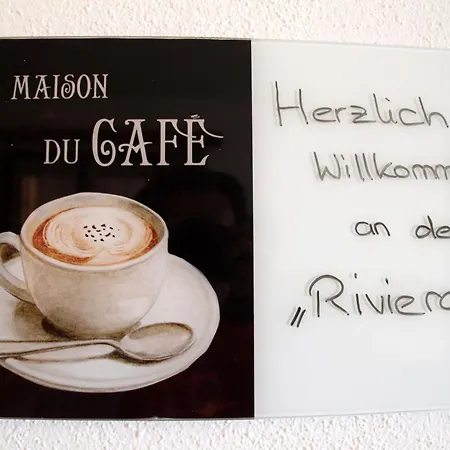 MAISON
DU CAFÉ
Herzlich
Willkomm
an de
„Riviera